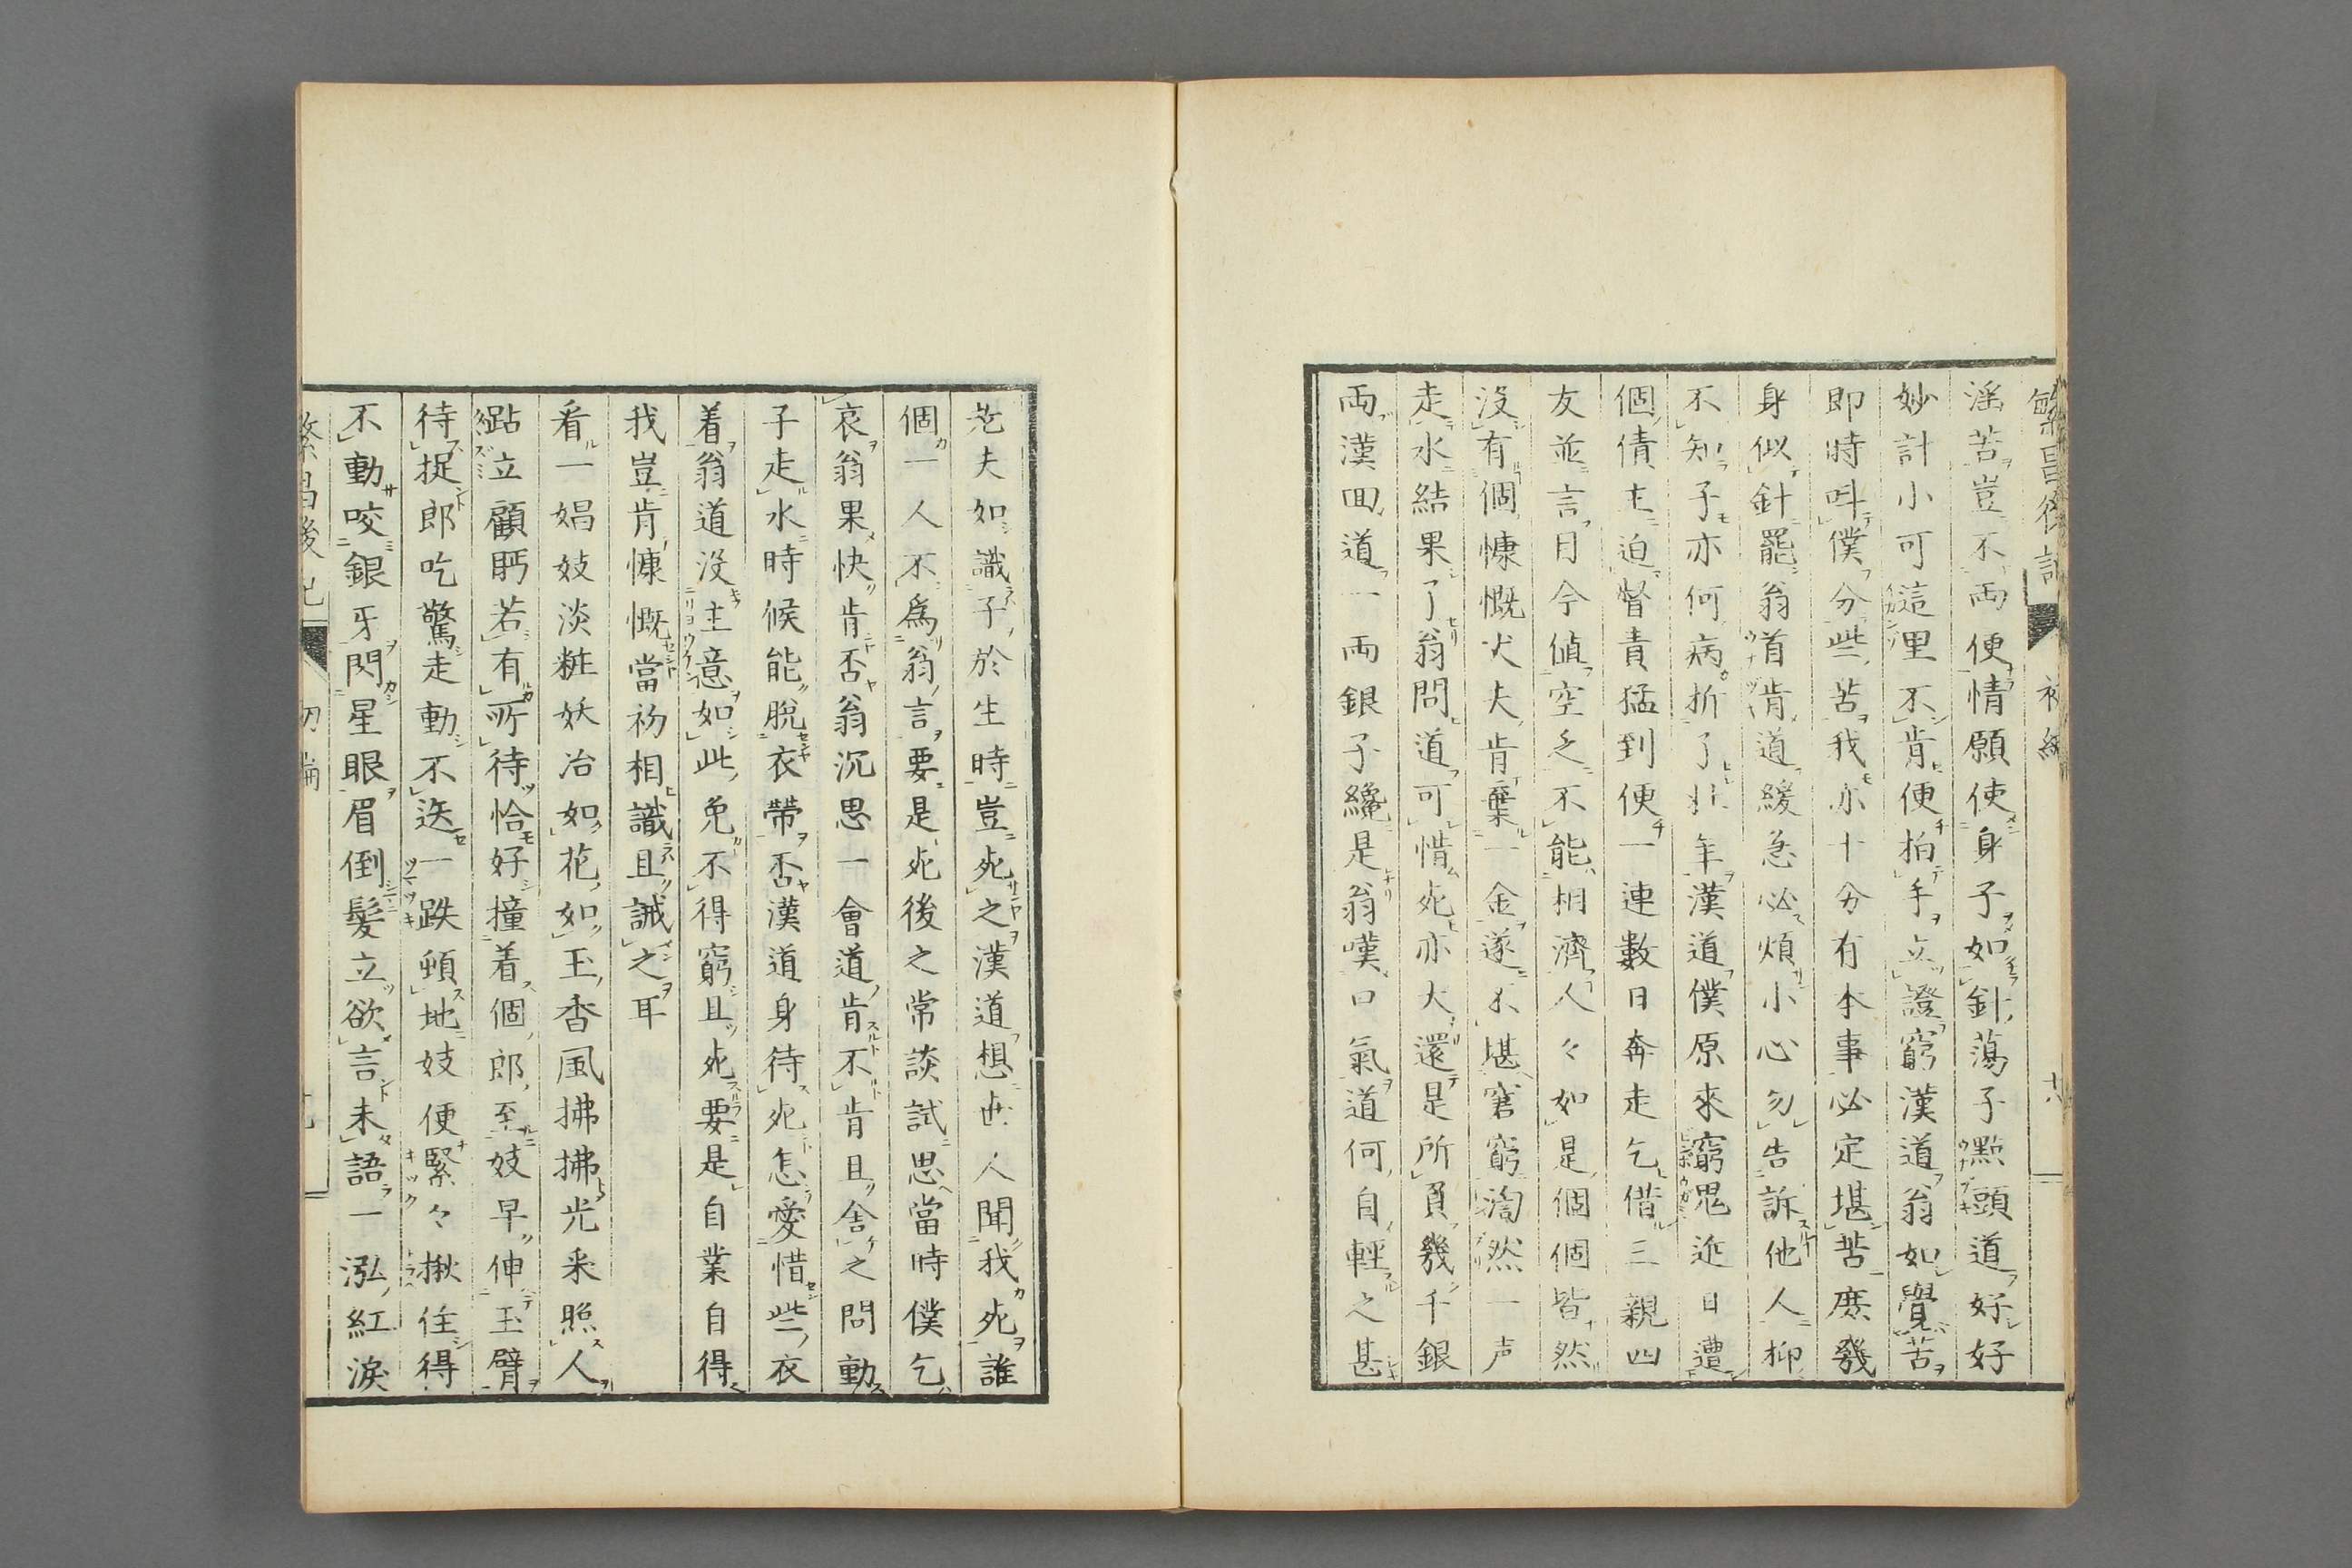 繁昌後記 初編 十八
淫苦豈不両便情願使身子如針蕩子㸃頭道好好
妙計小可這里不肯便拍手立證窮漢道翁如覺苦
即時呌僕分些苦我亦十分有本事必定堪苦庶幾
身似針罷翁首肯道緩急必煩小心勿告訴他人抑
不知子亦何病折了壯年漢道僕原來窮鬼近日遭
個債主迫督責猛到便一連數日奔走乞借三親四
友並言目今値空乏不能相濟人々如是個個皆然
没有個慷慨犬夫肯棄一金遂不堪窘窮淘然一声
走水結果了翁問道可惜死亦大還是所負幾千銀
両漢回道一両銀子纔是翁嘆口氣道何自輕之甚
老夫如識子於生時豈死之漢道想世人聞我死誰
個一人不為翁言要是死後之常談試思當時僕乞
哀翁果快肯否翁沉思一會道肯不肯且舎之問動
子走水時候能脫衣帶否漢道身待死怎愛惜些衣
着翁道没主意如此免不得窮且死要是自業自得
我豈肯慷慨當初相識且誡之耳
看一娼妓淡粧妖冶如花如玉香風拂拂光釆照人
跕立顧眄若有所待恰好撞着個郎至妓早伸玉臂
待捉郎吃驚走動不迭一跌頓地妓便緊々揪住得
不動咬銀牙閃星眼眉倒髪立欲言未語一泓紅淚
繁昌後記 初編